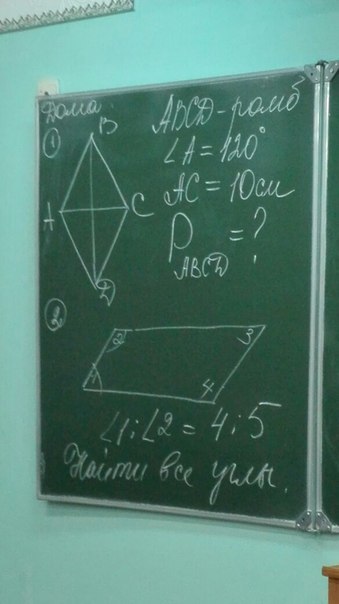 Дома:
①
B
A
C
D
ABCD - ромб
∠A = 120°
AC = 10 см
P ABCD = ?
②
2
3
1
4
∠1 : ∠2 = 4 : 5
Найти все углы.